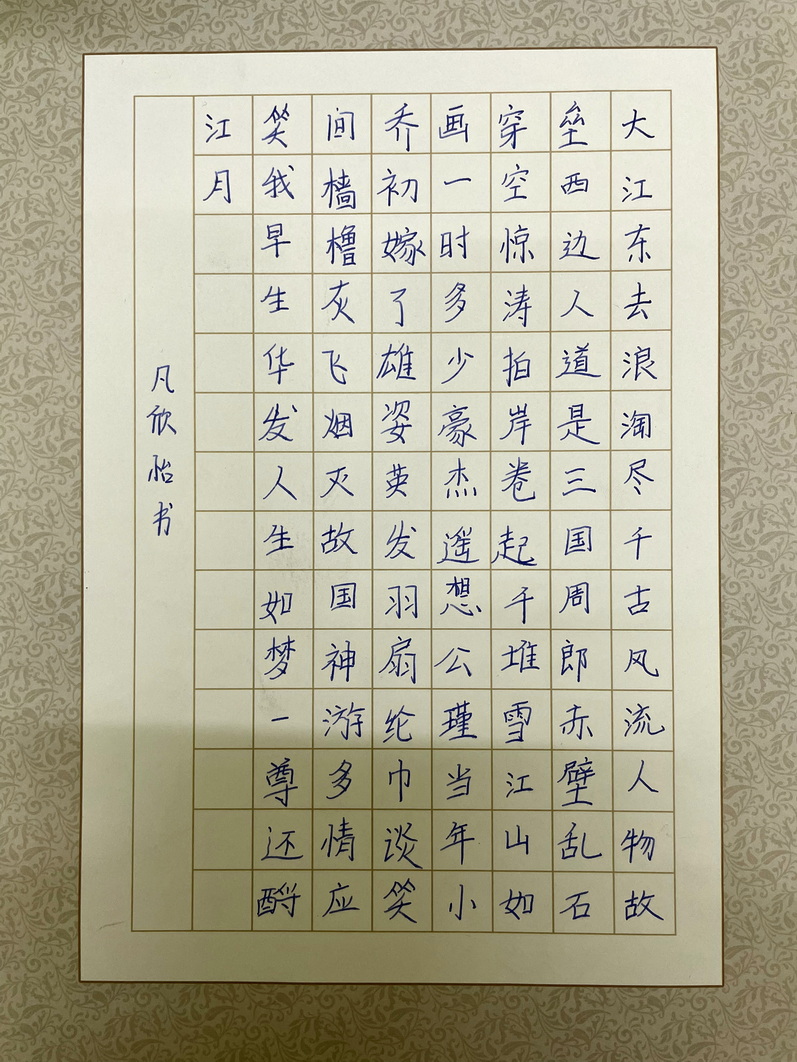 大江东去浪淘尽千古风流人物故
垒西边人道是三国周郎赤壁乱石
穿空惊涛拍岸卷起千堆雪江山如
画一时多少豪杰遥想公瑾当年小
乔初嫁了雄姿英发羽扇纶巾谈笑
间樯橹灰飞烟灭故国神游多情应
笑我早生华发人生如梦一尊还酹
江月
凡欣怡书